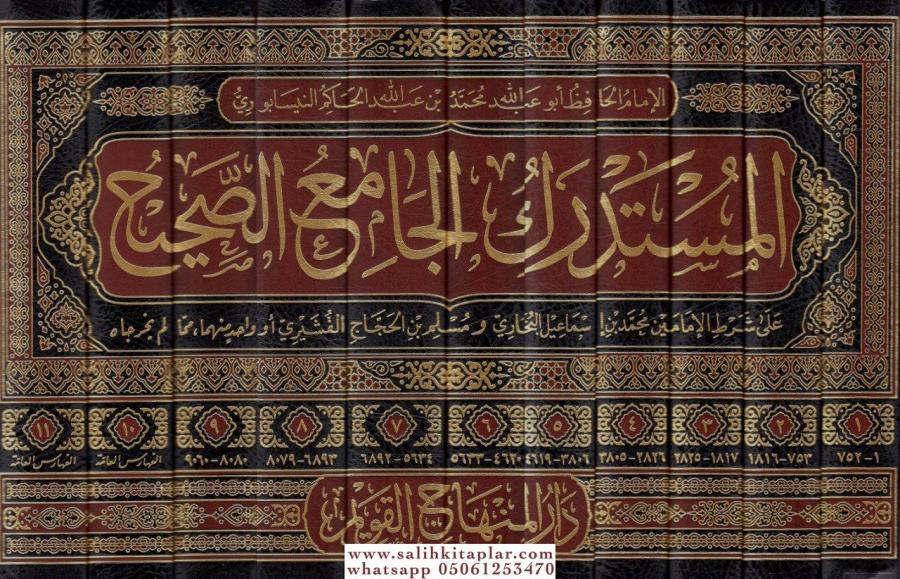 الإمام الحافظ أبو عبد الله محمد بن عبد الله الحاكم النيسابوري
المُسْتَدْرَكُ الجَامِعُ الصَّحِيحُ
عَلَى شَرْطِ الإمَامَيْن محمّد بن إسماعيل البُخَاري وَمُسْلِم بن الحَجّاج القُشَيْرِيّ أو واحدٍ منهما، ممّا لم يخرجاه
١ ٢ ٣ ٤ ٥ ٦ ٧ ٨ ٩ ١٠ ١١
١-٧٥٢ ٧٥٣-١٨١٦ ١٨١٧-٢٨٢٥ ٢٨٢٦-٣٨٠٥ ٣٨٠٦-٤٦١٩ ٤٦٢٠-٥٦٣٣ ٥٦٣٤-٦٨٩٢ ٦٨٩٣-٨٠٧٩ ٨٠٨٠-٩٠٦٠ الفهارس العامة الفهارس العامة
دَارُ المِنْهَاجِ القَوِيم
www.salihkitaplar.com
whatsapp 05061253470